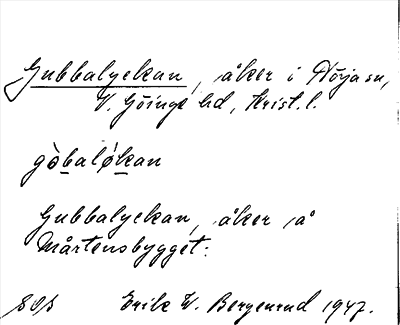 Gubbalyckan, åker i Röja sn,
V. Göinge hd, Krist. l.
gòbaløkan
Gubbalyckan, åker å
Mårtensbygget.
Erik W. Bergenrud 1947.